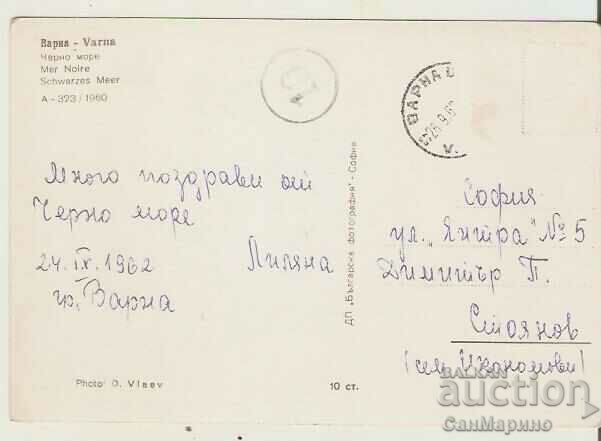 Варна - Varna
Черно море
Mer Noire
Schwarzes Meer
А - 323 / 1960
ВАРНА
26.9.6
Много поздрави от
Черно море
24.IX.1962 Лиляна
гр. Варна
ДП „Българска фотография" - София
София
ул. „Янтра" № 5
Димитър П.
Стоянов
(сем. Икономови)
Photo: D. Vlaev
10 ст.
BALKAN
auction
СанМарино